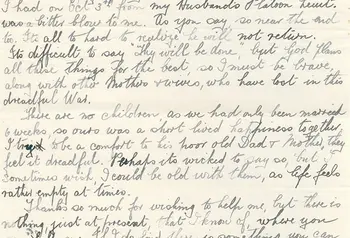 I had on Oct 3rd from my Husband's Platoon Lieut.
was a bitter blow to me. As you say, so near the end
too. Its all to hard to realize he will not return.
Its difficult to say "Thy will be done", yet God plans
all these things for the best, so I must be brave,
along with other Mothers & wives, who have lost in this
dreadful War.
There are no children, as we had only been married
6 weeks, so ours was a short lived happiness together
I try to be a comfort to his poor old Dad & Mother, they
feel it dreadful. Perhaps its wicked to say so, but I
sometimes wish I could be old with them, as life feels
rather empty at times.
Thanks so much for wishing to help me, but there is
nothing just at present, that I know of, where you
there is something you can